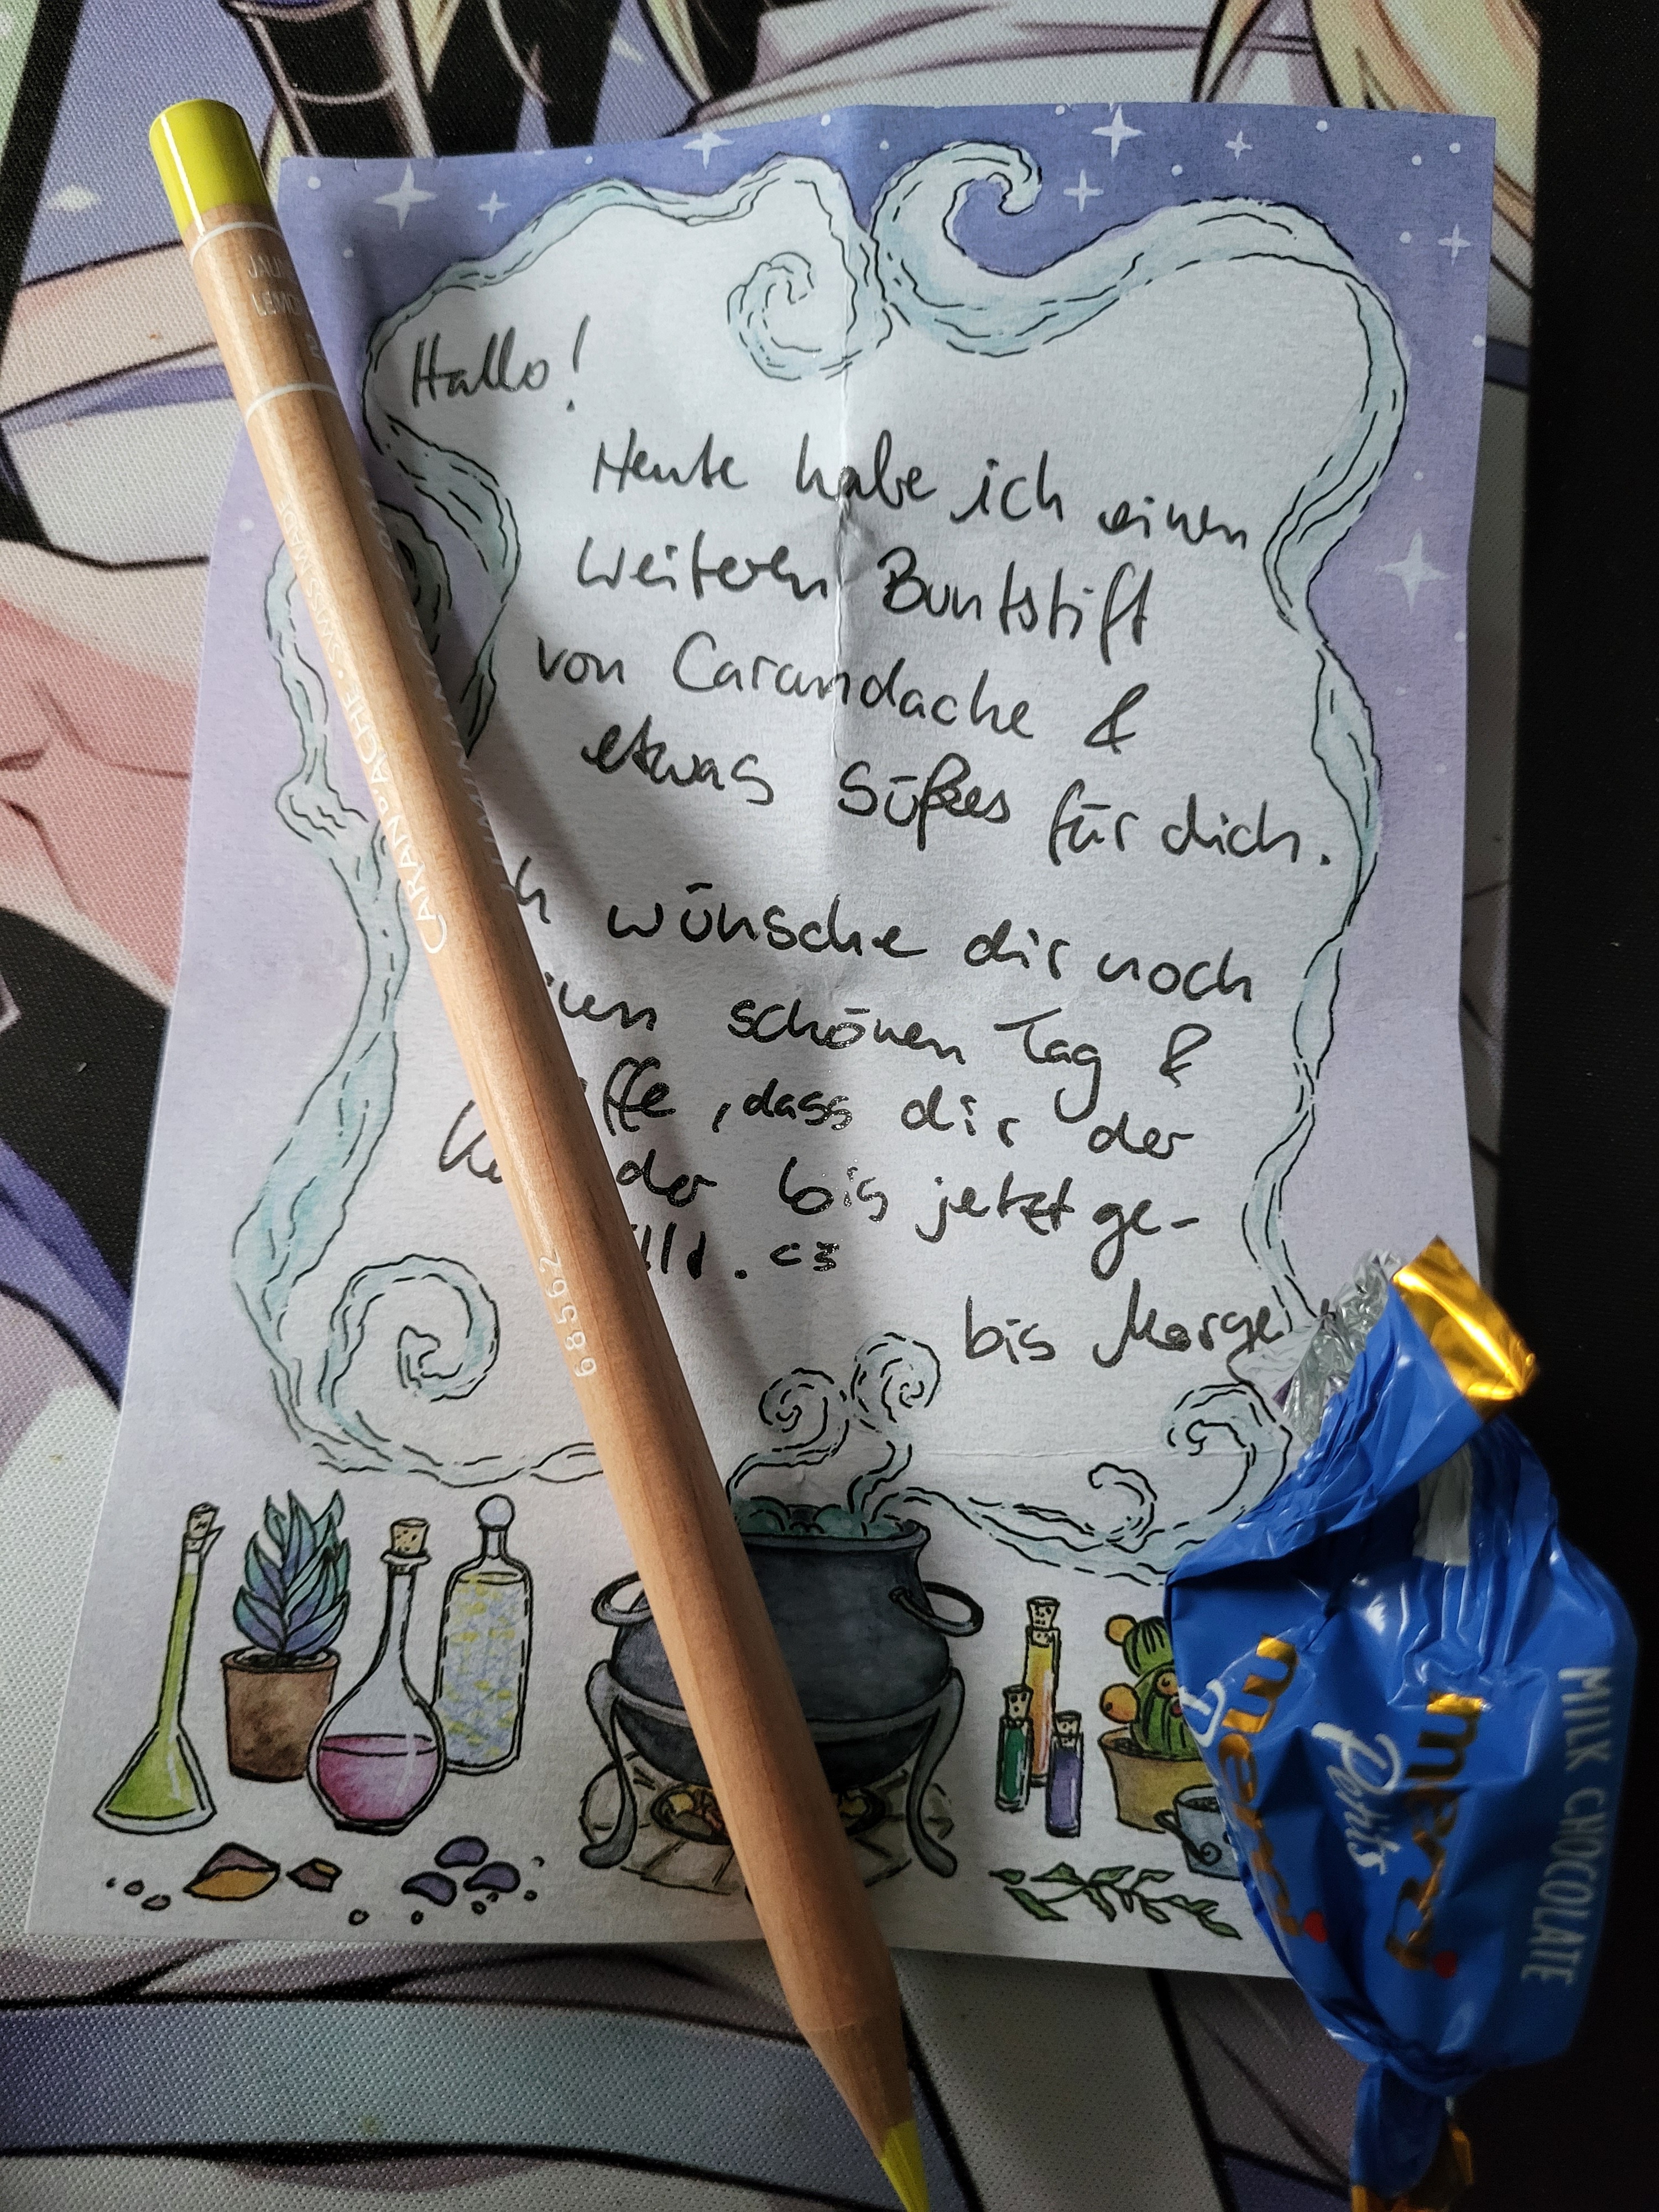 Hallo!
Heute habe ich einen
weiteren Buntstift
von Carandache &
etwas Süßes für dich.
h wünsche dir noch
nen schönen Tag &
ffe, dass dir der
der bis jetzt ge-
llt. <3
bis Morge
CARAN D'ACHE · SWISS MADE
68562
merci
Petits
merci
MILK CHOCOLATE